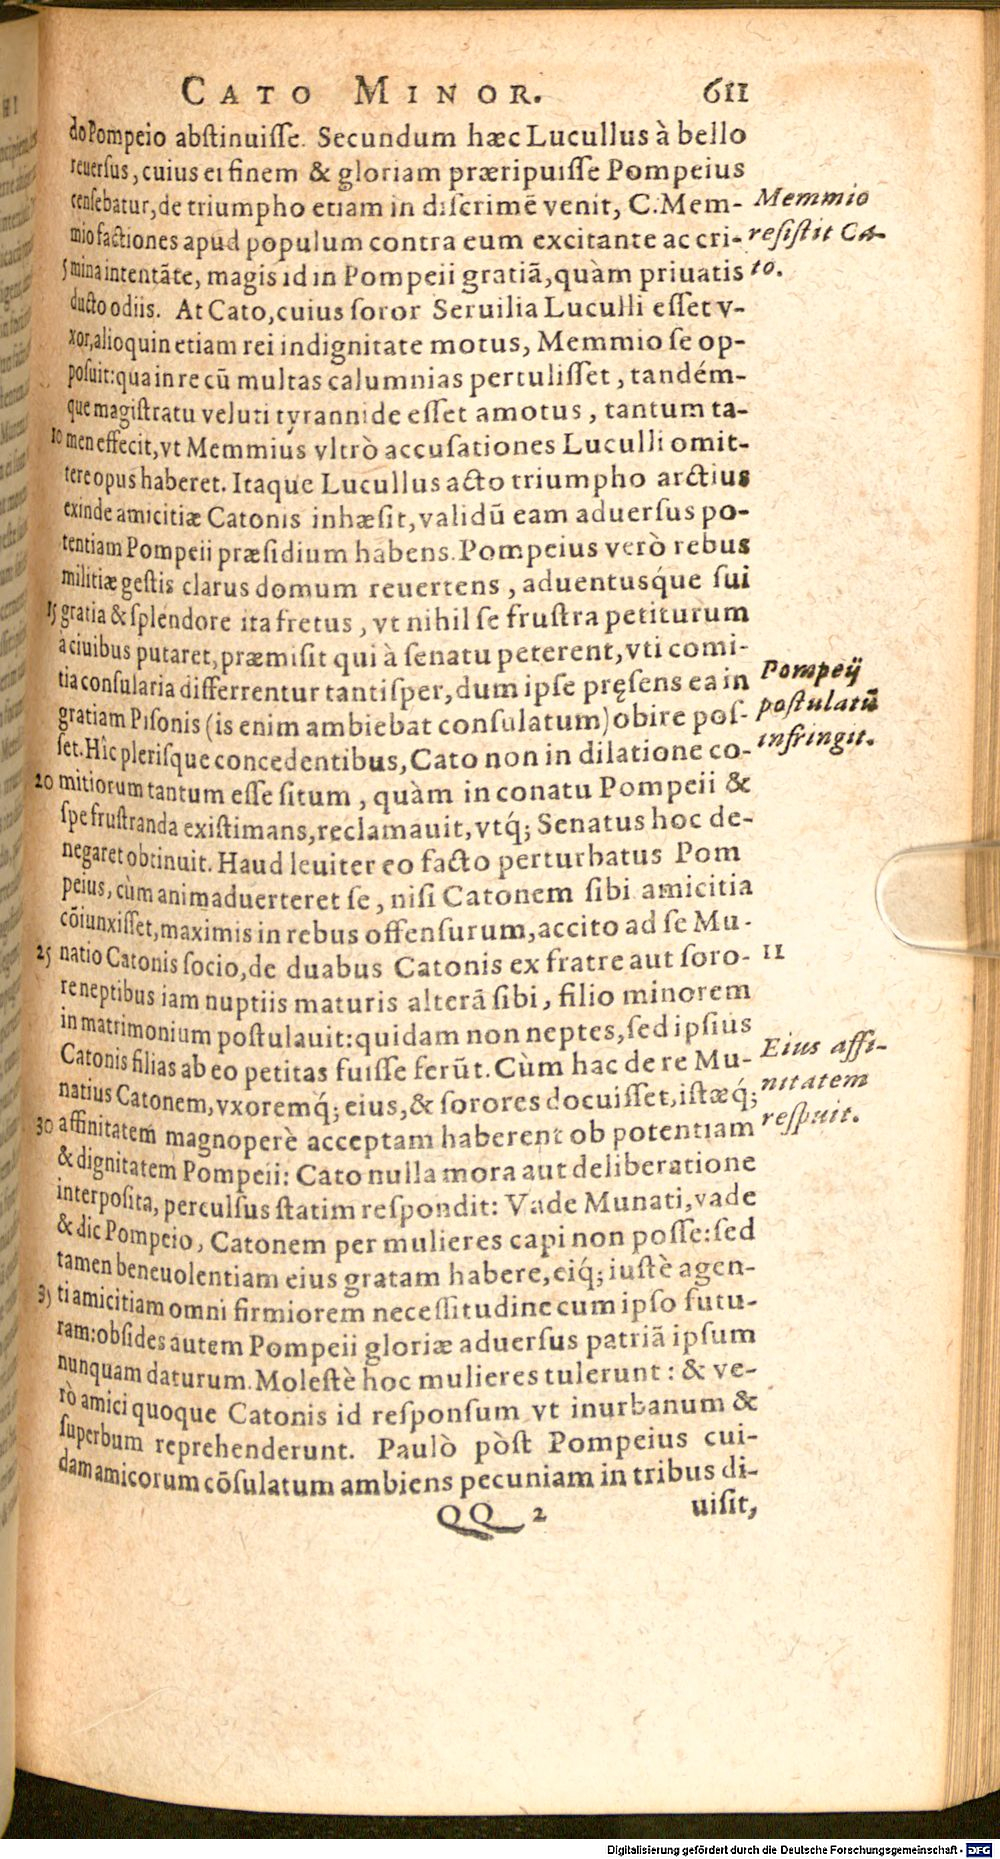 CATO MINOR. 611
do Pompeio abstinuisse. Secundum hæc Lucullus à bello
reuersus, cuius ei finem & gloriam præripuisse Pompeius
censebatur, de triumpho etiam in discrimē venit, C. Mem-
mio factiones apud populum contra eum excitante ac cri-
5 mina intentāte, magis id in Pompeii gratiā, quàm priuatis
ducto odiis. At Cato, cuius soror Seruilia Luculli esset v-
xor, alioquin etiam rei indignitate motus, Memmio se op-
posuit: qua in re cū multas calumnias pertulisset, tandém-
que magistratu veluti tyrannide esset amotus, tantum ta-
10 men effecit, vt Memmius vltrò accusationes Luculli omit-
tere opus haberet. Itaque Lucullus acto triumpho arctius
exinde amicitiæ Catonis inhæsit, validū eam aduersus po-
tentiam Pompeii præsidium habens. Pompeius verò rebus
militiæ gestis clarus domum reuertens, aduentusq́ue sui
15 gratia & splendore ita fretus, vt nihil se frustra petiturum
à ciuibus putaret, præmisit qui à senatu peterent, vti comi-
tia consularia differrentur tantisper, dum ipse pręsens ea in
gratiam Pisonis (is enim ambiebat consulatum) obire pos-
set. Hîc plerisque concedentibus, Cato non in dilatione co-
20 mitiorum tantum esse situm, quàm in conatu Pompeii &
spe frustranda existimans, reclamauit, vtq́; Senatus hoc de-
negaret obtinuit. Haud leuiter eo facto perturbatus Pom
peius, cùm animaduerteret se, nisi Catonem sibi amicitia
cōiunxisset, maximis in rebus offensurum, accito ad se Mu-
25 natio Catonis socio, de duabus Catonis ex fratre aut soro-
re neptibus iam nuptiis maturis alterā sibi, filio minorem
in matrimonium postulauit: quidam non neptes, sed ipsius
Catonis filias ab eo petitas fuisse ferūt. Cùm hac de re Mu-
natius Catonem, vxoremq́; eius, & sorores docuisset, istæq́;
30 affinitatem magnoperè acceptam haberent ob potentiam
& dignitatem Pompeii: Cato nulla mora aut deliberatione
interposita, perculsus statim respondit: Vade Munati, vade
& dic Pompeio, Catonem per mulieres capi non posse: sed
tamen beneuolentiam eius gratam habere, eiq́; iustè agen-
35 ti amicitiam omni firmiorem necessitudine cum ipso futu-
ram: obsides autem Pompeii gloriæ aduersus patriā ipsum
nunquam daturum. Molestè hoc mulieres tulerunt: & ve-
rò amici quoque Catonis id responsum vt inurbanum &
superbum reprehenderunt. Paulò pòst Pompeius cui-
dam amicorum cōsulatum ambiens pecuniam in tribus di-
QQ 2 uisit,
Memmio
resistit Ca-
to.
Pompeij
postulatū
infringit.
II
Eius affi-
nitatem
respuit.
Digitalisierung gefördert durch die Deutsche Forschungsgemeinschaft - DFG